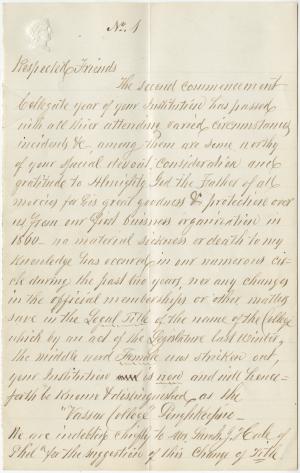 No. 1
Respected Friends
The second commencement
Collegate year of your Institution has passed
with all their attending varied circumstances
incidents &c, among them are some worthy
of your special devout consideration and
gratitude to Almighty God the Father of all
mercies for his great goodness & protection over
us from our first business organization in
1860 no material sickness or death to my
knowledge has occured in our numerous cir-
cle during the past two years, nor any changes
in the official memberships or other matters
save in the Local Title of the name of the College
which by an act of the Legislature last Winter,
the middle word Female was stricken out,
your Institution is now and will hence-
forth be known & distinguished as the
"Vassar College" Poughkeepsie—
We are indebted chiefly to Mrs Sarah J. Hale of
Phila for the suggestion of this Change of Title